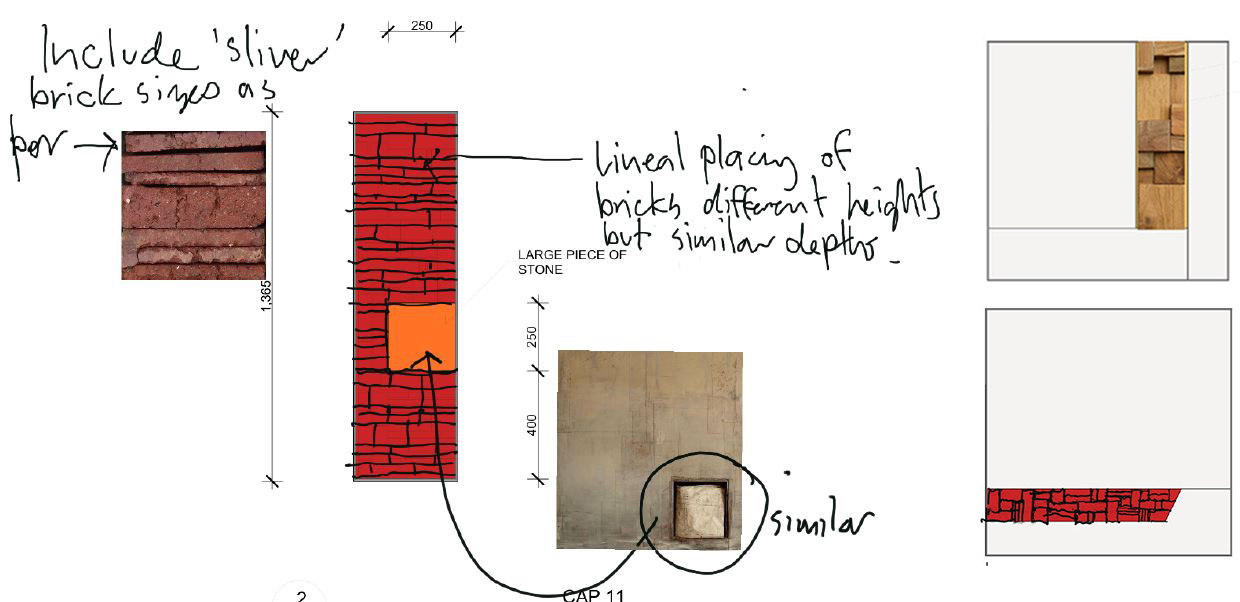 Include 'sliver'
brick sizes as
per
250
1,365
Lineal placing of
bricks different heights
but similar depths
LARGE PIECE OF
STONE
250
400
similar
2
CAP 11